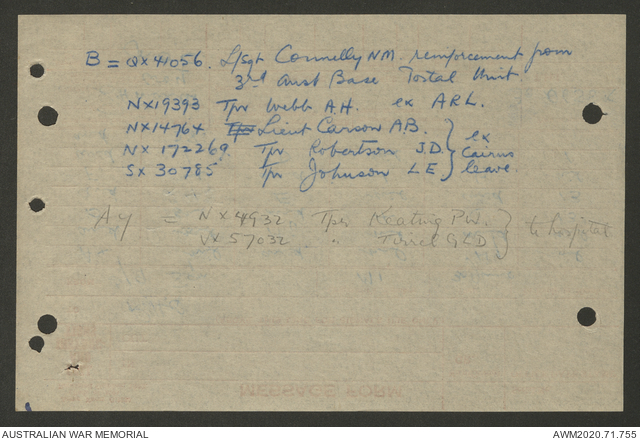 B = QX41056. L/Sgt Connelly NM. reinforcement from
3rd Aust Base Postal Unit.
NX19393 Tpr Webb A.H. ex ARL.
NX14764 Lieut Carson A.B. } ex
NX172269. Tpr Robertson J.D. } Cairns
SX30785 Tpr Johnson L E } leave.
A = NX4932 Tprs Keating P.W. } to hospital
VX57032 " Tirrel G L D }
MESSAGE FORM
AUSTRALIAN WAR MEMORIAL
AWM2020.71.755